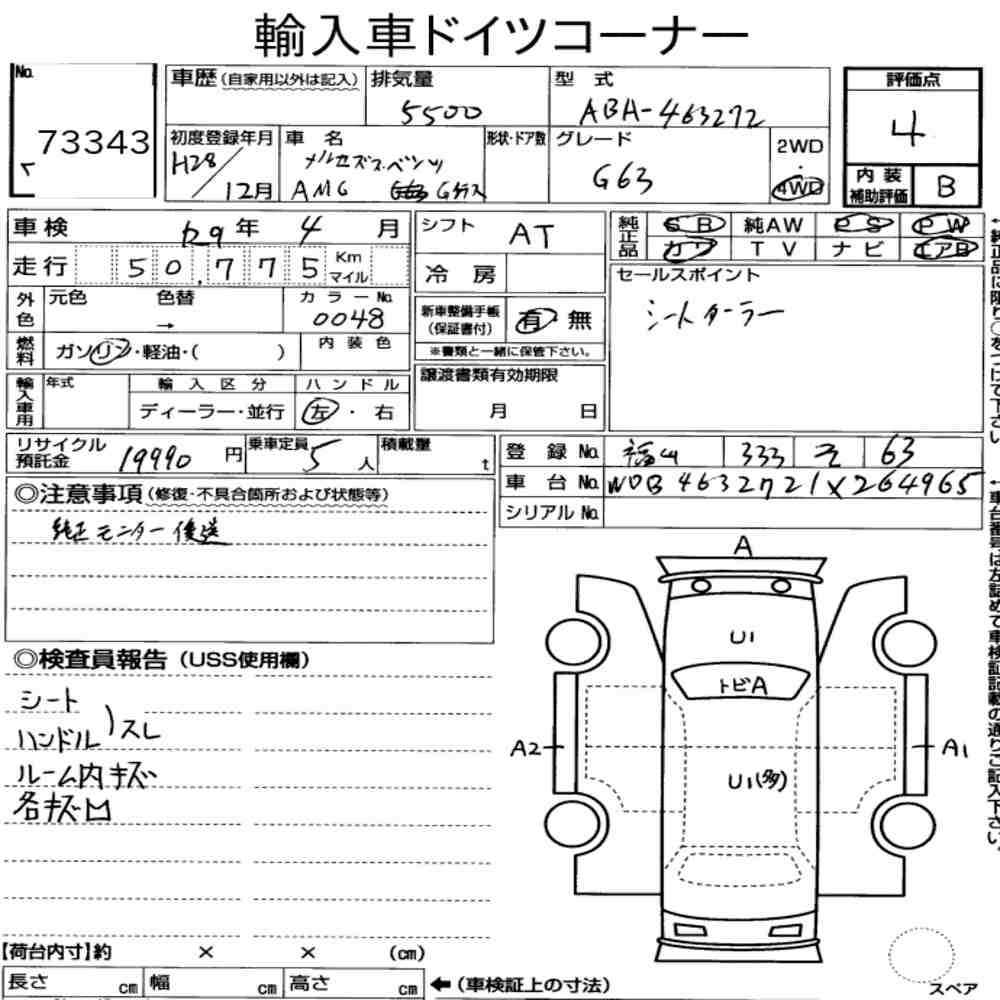 輸入車ドイツコーナー
No.
73343
車歴(自家用以外は記入)
排気量
5500
型式
ABA-463272
評価点
4
初度登録年月
H28/12月
車名
メルセデスベンツ
AMG Gクラス
形状・ドア数
グレード
G63
2WD
・
4WD
内装
補助評価
B
車検
R9年 4月
シフト
AT
純正品
SR 純AW PS PW
カワ TV ナビ エアB
走行
50,775
Km
マイル
冷房
セールスポイント
シートクーラー
外色
元色 色替
→
カラーNo.
0048
新車整備手帳
(保証書付)
有 無
※書類と一緒に保管下さい。
燃料
ガソリン・軽油・( )
内装色
譲渡書類有効期限
月 日
輸入車用
年式
輸入区分
ディーラー・並行
ハンドル
左・右
リサイクル
預託金
19990円
乗車定員
5人
積載量
t
登録No.
福山 333 そ 63
車台No.
WDB4632721X264965
シリアルNo.
←純正品に限り○をつけて下さい
←車台番号は左詰めで車検証記載の通りご記入下さい。
◎注意事項(修復・不具合箇所および状態等)
純正モニター後送
◎検査員報告(USS使用欄)
シート
ハンドル)スレ
ルーム内キズ
各キズ凹
A
U1
トビA
A2
A1
U1(多)
【荷台内寸】約 × × (cm)
長さ cm 幅 cm 高さ cm
←(車検証上の寸法)
スペア